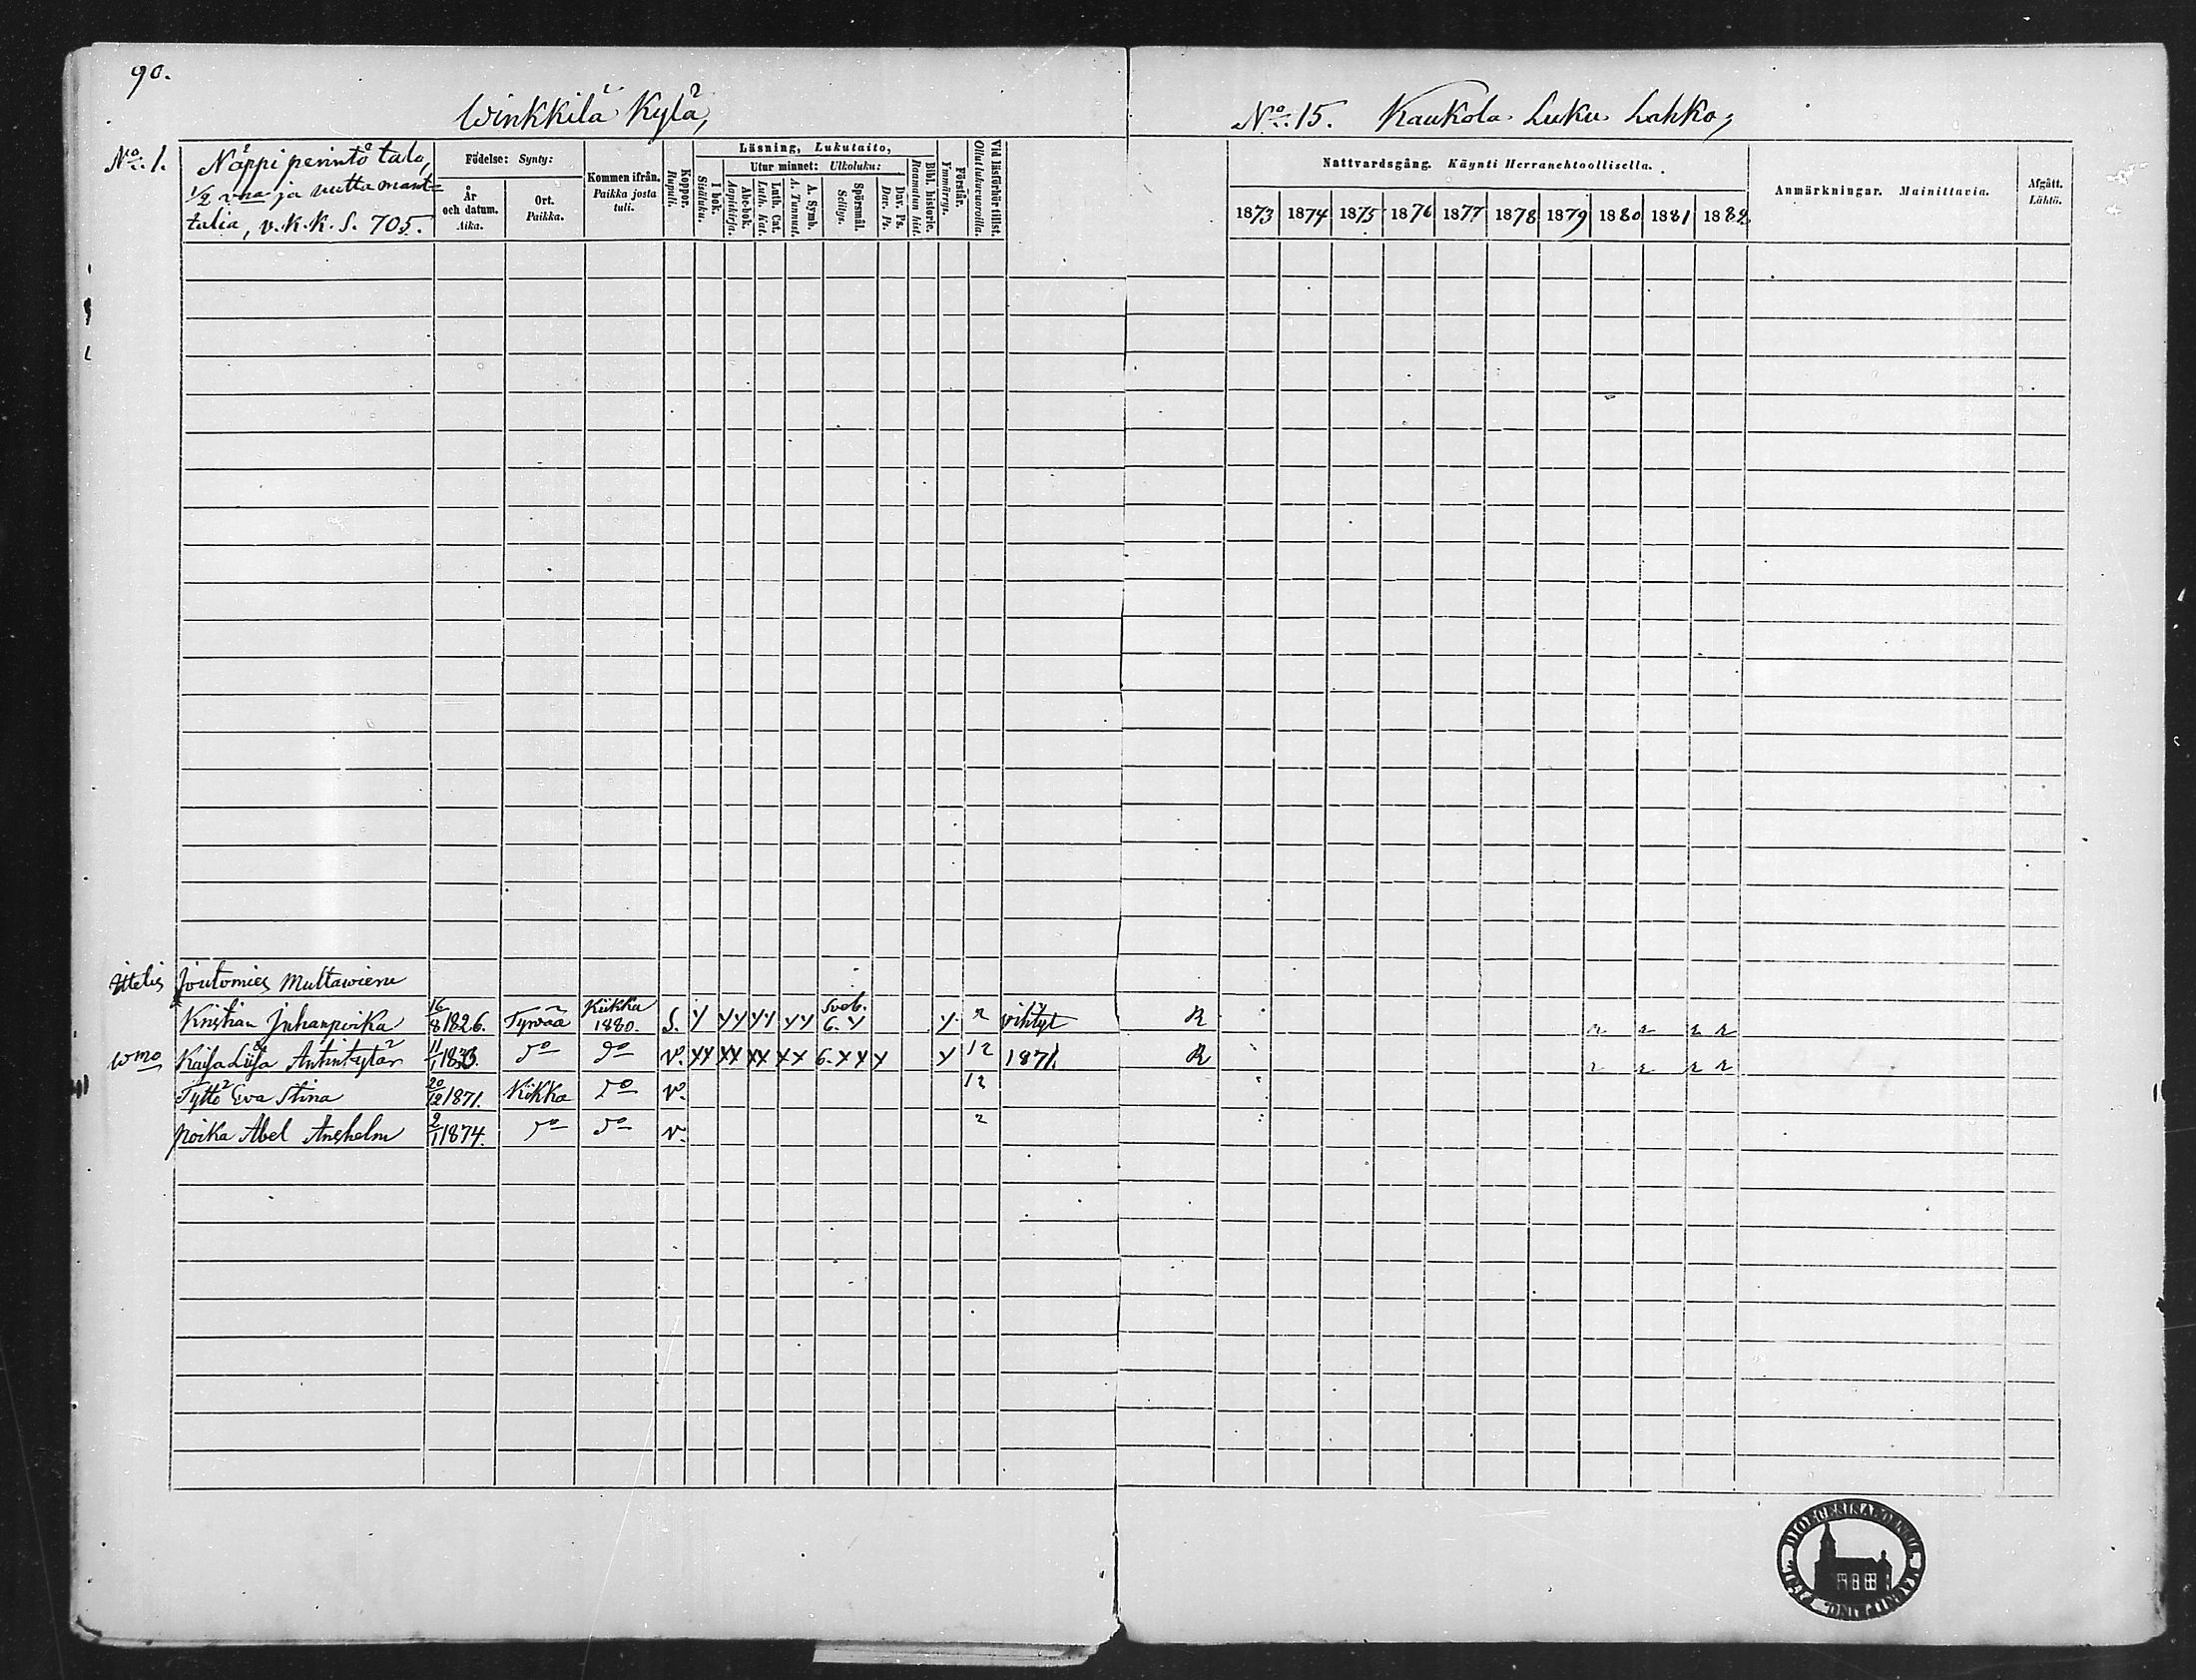 90.
Winkkilä Kylä,
No. 15. Kaukola Luku Lahko,
No. 1.
Näppi perintö talo,
1/2 vaa ja uutta mant=
talia, v.k.k.s. 705.
Födelse: Synty:
År och datum. Aika.
Ort. Paikka.
Kommen ifrån. Paikka josta tuli.
Koppor. Rupuli.
Läsning, Lukutaito,
I bok. Sisäluku.
Utur minnet: Ulkoluku:
Abc-bok. Aapiskirja.
Luth. Cat. Luth. Kat.
A. Symb. A. Tunnust.
Spörsmål. Selitys.
Dav. Ps. Dav. Ps.
Bibl. historie. Raamatun hist.
Förstår. Ymmärrys.
Vid läsförhör tillst. Ollut lukuvuoroilla.
Nattvardsgång. Käynti Herranehtoollisella.
1873 1874 1875 1876 1877 1878 1879 1880 1881 1882
Anmärkningar. Mainittavia.
Afgått. Lähtö.
Itellis Joutomies Multawieru
Kristian Juhanpoika 16/8 1826. Tyrvää Kiikka 1880. S. Y YY YY YY Sveb. 6. Y Y 2 vihtyt R
wmo Kaisa Liisa Antintytär 11/1 1833. do do V. XX XX XX XX 6. XX X X 12 1871. R
Tyttö Eva Stina 20/12 1871. Kiikka do V. 12
poika Abel Anshelm 2/1 1874. do do V. 2